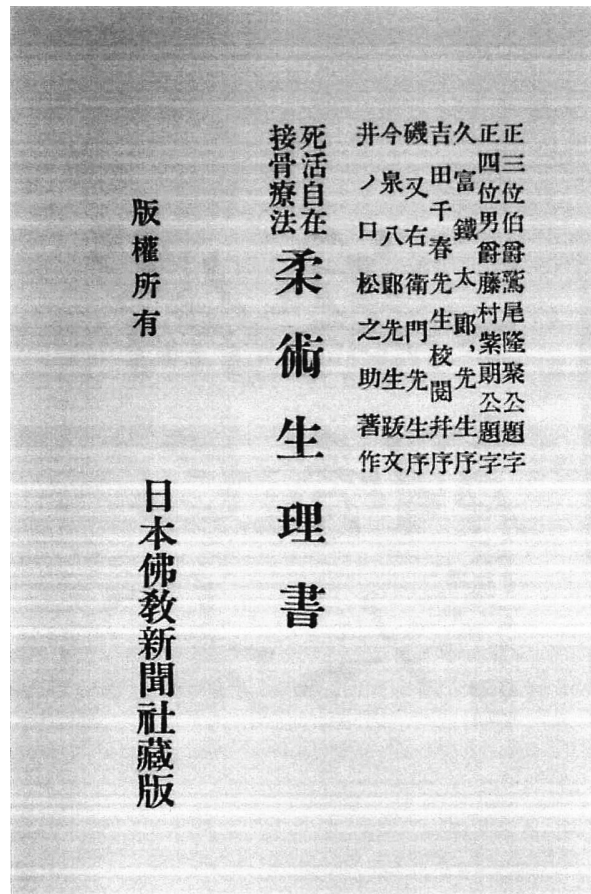 正三位伯爵鷲尾隆聚公題字
正四位男爵藤村紫朗公題字
久富鐵太郎,先生序
吉田千春先生校閲并序
磯又右衛門先生序
今泉八郎先生跋文
井ノ口松之助著作
死活自在
接骨療法
柔術生理書
版權所有
日本佛教新聞社藏版